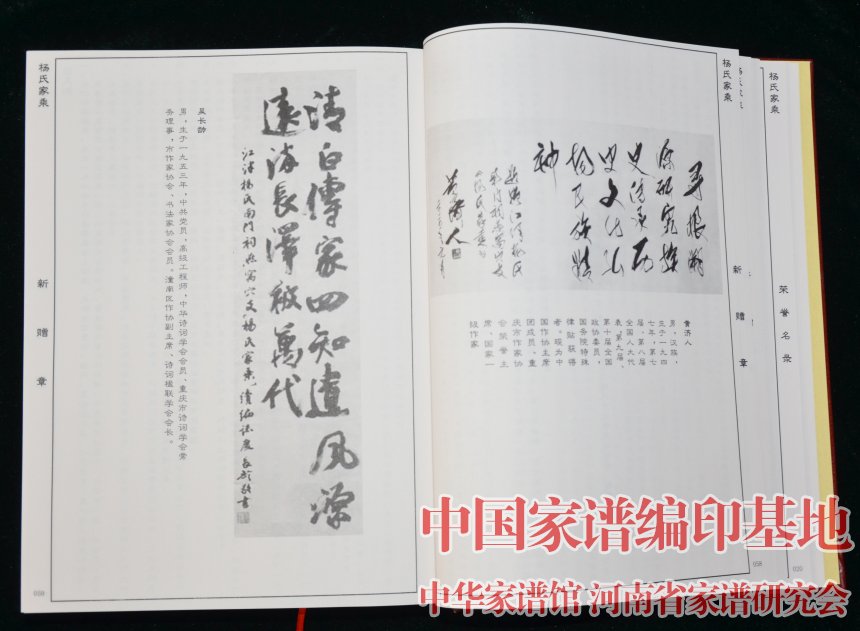 杨氏家乘
新赠章
059
清白传家四知遗风深
远海长泽被万代
吴长龄
男，生于一九五三年，中共党员，高级工程师，中华诗词学会会员、重庆市诗词学会常
务理事，市作家协会、书法家协会会员。潼南区作协副主席、诗词楹联学会会长。
杨氏家乘
新赠章
058
寻根溯
源研究族
史传承历
史文化弘
扬民族精
神
黄济人
黄济人
男，汉族，
生于一九四
七年，第七
届、第八届
全国人大代
表，第九届、
第十届全国
政协委员，
国务院特殊
律贴获得
者。现为中
国作协主席
团成员、重
庆市作家协
会荣誉主
席，国家一
级作家
杨氏家乘
荣誉名录
020
中国家谱编印基地
中华家谱馆 河南省家谱研究会